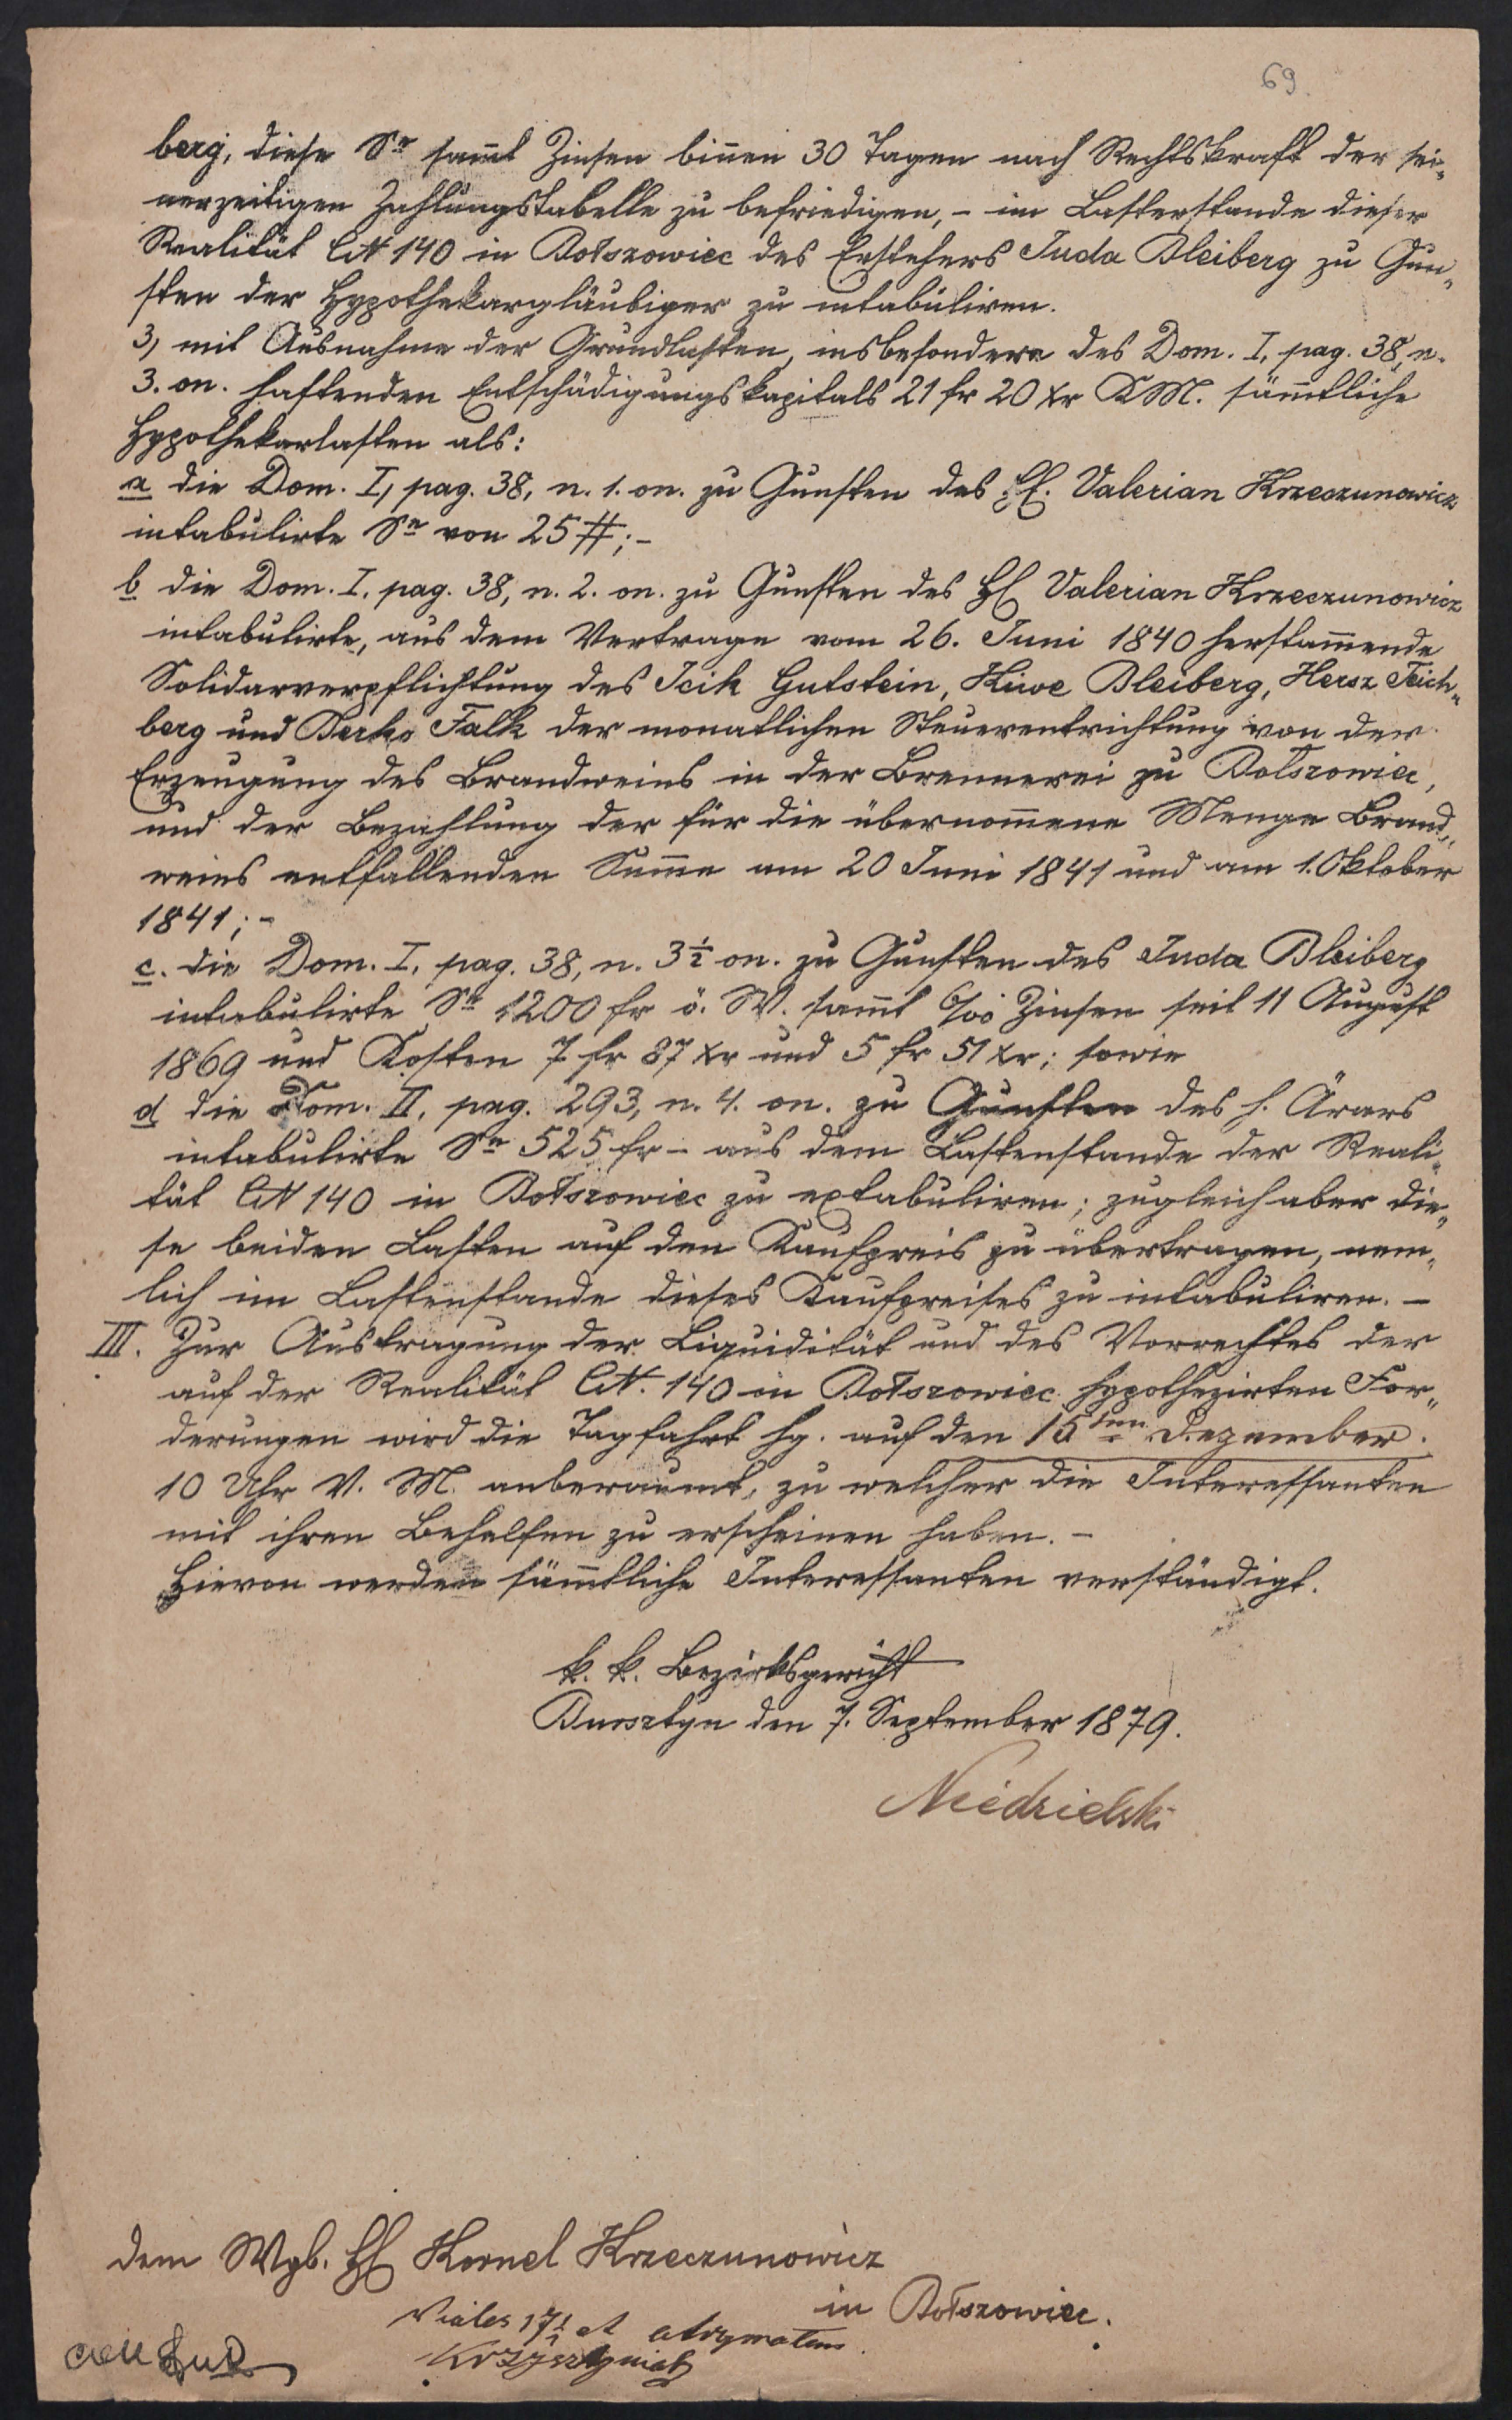 69.
berg, diese Se sam̅t Zinsen bin̅en 30 Tagen nach Rechtskraft der sei„
nerzeitigen Zahlungstabelle zu befriedigen, – im Lastenstande dieser
Realität CN 140 in Bołszowiec des Erstehers Juda Bleiberg zu Gun„
sten der Hypothekargläubiger zu intabuliren.
3, mit Ausnahme der Grundlasten, insbesondere des Dom. I, pag. 38, n.
3. on. haftenden Entschädigungskapitals 21 fr 20 xr KM. säm̅tliche
Hypothekarlasten als:
a die Dom. I, pag. 38, n. 1. on. zu Gunsten des H. Valerian Krzeczunowicz
intabulirte Se von 25 #; –
b die Dom. I. pag. 38, n. 2. on. zu Gunsten des H Valerian Krzeczunowicz
intabulirte, aus dem Vertrage vom 26. Juni 1840 herstam̅ende
Solidarverpflichtung des Icik Gutstein, Kiwe Bleiberg, Hersz Teich„
berg und Berko Falk der monatlichen Steuerentrichtung von der
Erzeugung des Brandweins in der Brennerei zu Bołszowiec,
und der Bezahlung der für die übernom̅ene Menge Brand„
weins entfallenden Sum̅e am 20 Juni 1841 und am 1. Oktober
1841; –
c. die Dom. I. pag. 38, n. 3½ on. zu Gunsten des Juda Bleiberg
intabulirte Se 1200 fr ö. W. sam̅t 6/00 Zinsen seit 11 August
1869 und Kosten 7 fr 87 xr und 5 fr 51 xr; sowie
d die Dom. II, pag. 293, n. 4. on. zu Gunsten des h. Ärars
intabulirte Se 525 fr – aus dem Lastenstande der Reali„
tät CN 140 in Bołszowiec zu extabuliren; zugleich aber die„
se beiden Lasten auf den Kaufpreis zu übertragen, nem„
lich im Lastenstande dieses Kaufpreises zu intabuliren. –
III. Zur Austragung der Liquidität und des Vorrechtes der
auf der Realität CN. 140 in Bołszowiec hypothezirten For„
derungen wird die Tagfahrt hg. auf den 15ten Dezember.
10 Uhr V. M. anberaumt, zu welcher die Interessanten
mit ihren Behelfen zu erscheinen haben. –
Hievon werden säm̅tliche Interessanten verständigt.
k. k. Bezirksgericht
Bursztyn den 7. September 1879.
Niedzielski
dem Wgb. H Kornel Krzeczunowicz
in Bołszowiec.